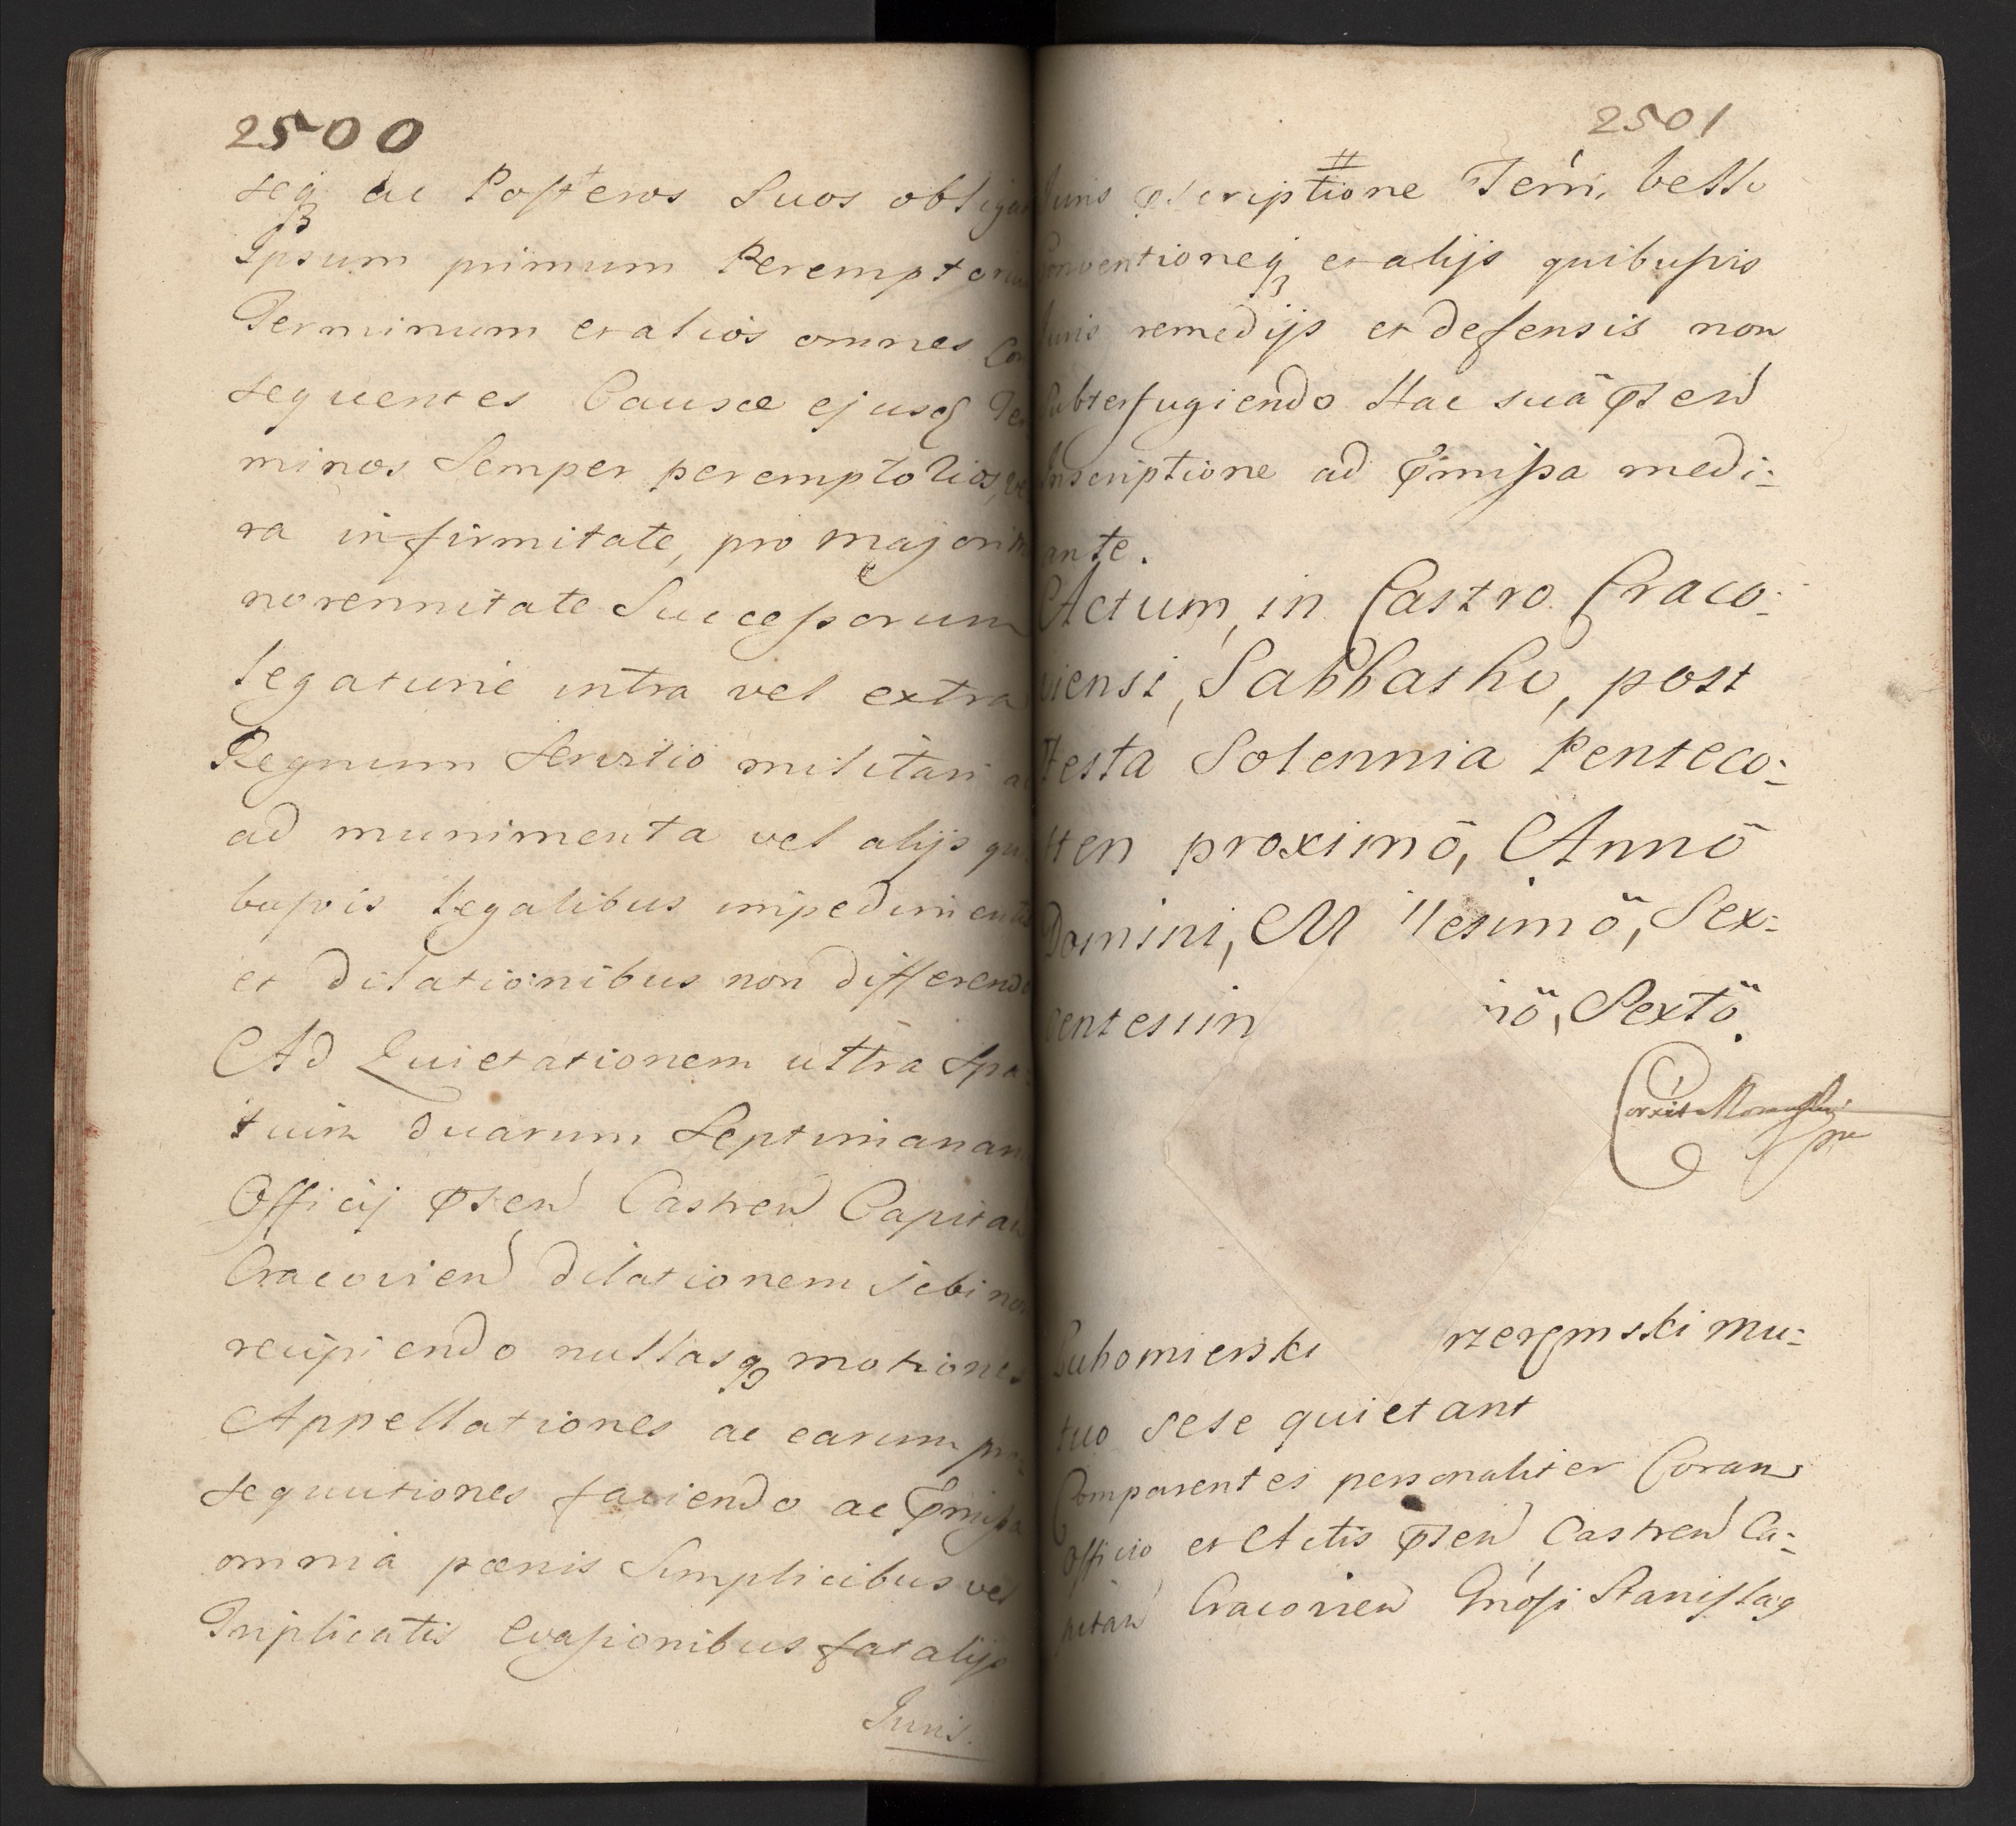 2500
seq3 ac Posteros Suos obliga
Ipsum primum Perempto
Terminum et alios omnes Con
sequentes Causæ ejusq Ter
minos Semper peremptorios, ve
ra infirmitate, pro majori
norennitate Successorum
legatione intra vel extra
Regnum Servitio militari a
ad munimenta vel alijs qu
busvis legalibus impedimentis
et dilationibus non differendo
Ad Quietationem ultra Spa
tium duarum Septimanar
Officij pñsen Castren Capitan
Cracovien dilationem sibi non
recipiendo nullasq3 motiones
Appellationes ac earum pro
sequutiones faciendo ac Pmissa
omnia pœnis Simplicibus vel
Triplicatis evasionibus fatalijs
Juris.
2501
Juris pscriptione Terrñ, bello
Conventioneq3 et alijs quibusvis
Juris remedijs et defensis non
Subterfugiendo Hac suâ pñsen
Inscriptione ad Pmissa medi:
ante.
Actum, in Castro Craco:
viensi, Sabbatho, post
Festa Solennia Penteco:
sten proximô, Annô
Domini, M llesimô, Sex:
centesim nô, Sextô.
Corxit
Lubomierski rzeremski mu:
tuo sese quietant
Comparentes personaliter Coram
Officio et Actis pñsen Castren Ca:
pitan Cracovien Gnosi Stanislaq